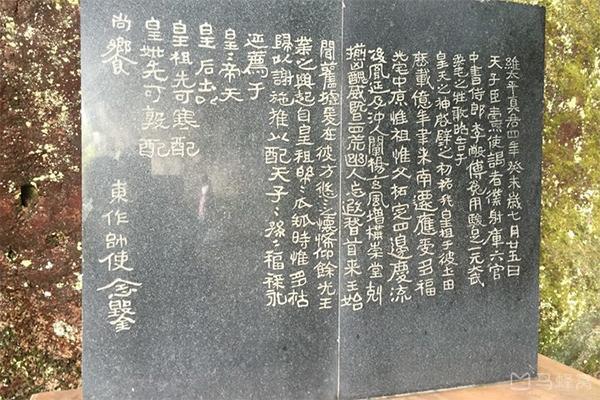 維太平真君四年癸未歲七月廿五日
天子臣燾使謁者僕射庫六官
中書侍郎李敞傅㝹用駿足一元大武
柔毛之牲敢昭告于
皇天之神啟辟之初祐我皇祖于彼土田
歷載億年聿來南遷應受多福
光宅中原惟祖惟父拓定四邊慶流
後胤延及沖人闡揚玄風增構崇堂剋
揃凶醜威暨四荒幽人忘遐稽首來王始
聞舊墟爰在彼方悠〻之懷希仰餘光王
業之興起自皇祖綿〻瓜瓞時惟多祜
歸以謝施推以配天子〻孫〻福祿永
延薦于
皇〻帝天
皇〻后土以
皇祖先可寒配
皇妣先可敦配
尚饗
東作帥使念鑿
马蜂窝